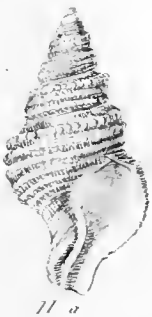 11 a